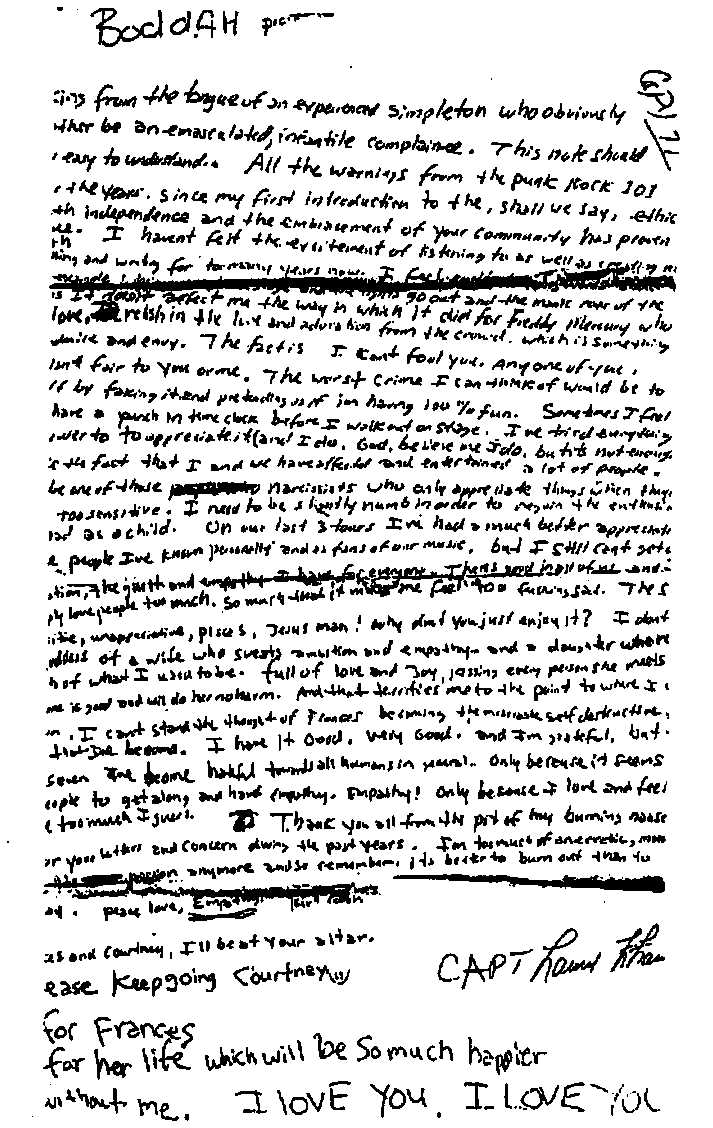 BoddAH
from the tongue of an experienced simpleton who obviously
be an emasculated, infantile complainee. This note should
easy to understand. All the warnings from the punk Rock 101
the years. since my first introduction to the, shall we say, ethic
independence and the embracement of your community has proven
I havent felt the excitement of listening to as well as creating
and writing for too many years now. I feel
go out and the manic roar of the
doesnt affect me the way in which it did for Freddy Mercury who
love, relish in the love and adoration from the crowd. which is something
and envy. The fact is I Cant fool you. Any one of you.
fair to you or me. The worst crime I can think of would be to
by faking it and pretending as if im having 100% fun. Sometimes I feel
have a punch in time clock before I walk out on stage. I've tried everything
to appreciate it (and I do, God, believe me I do, but its not enough
the fact that I and we have affected and entertained a lot of people.
be one of those Narcissists who only appreciate things when they
too sensitive. I need to be slightly numb in order to regain the
as a child. On our last 3 tours I've had a much better
people I've known personally and as fans of our music, but I still cant get
the guilt and empathy I have for everyone. Theres good in all of us and
love people too much. So much that it makes me feel too fucking sad. The
unappreciative, pisces, Jesus man! why dont you just enjoy it? I dont
of a wife who sweats ambition and empathy. and a daughter who
of what I used to be. full of love and Joy, kissing every person she meets
is good and will do her no harm. And that terrifies me to the point to where I
I cant stand the thought of Frances becoming the miserable self destructive,
I've become. I have it Good. very Good. and I'm grateful, but
seven I've become hateful towards all humans in general. Only because it seems
to get along and have empathy. Empathy! Only because I love and feel
too much I guess. Thank you all from the pit of my burning nause
your letters and concern during the past years. I'm too much of an erratic, moo
passion anymore and so remember, its better to burn out than to
peace love, Empathy.
and Courtney, I'll be at your altar.
ease Keep going Courtney
for Frances
for her life which will be so much happier
without me. I LOVE YOU. I LOVE YOU
GP1/72
CAPT